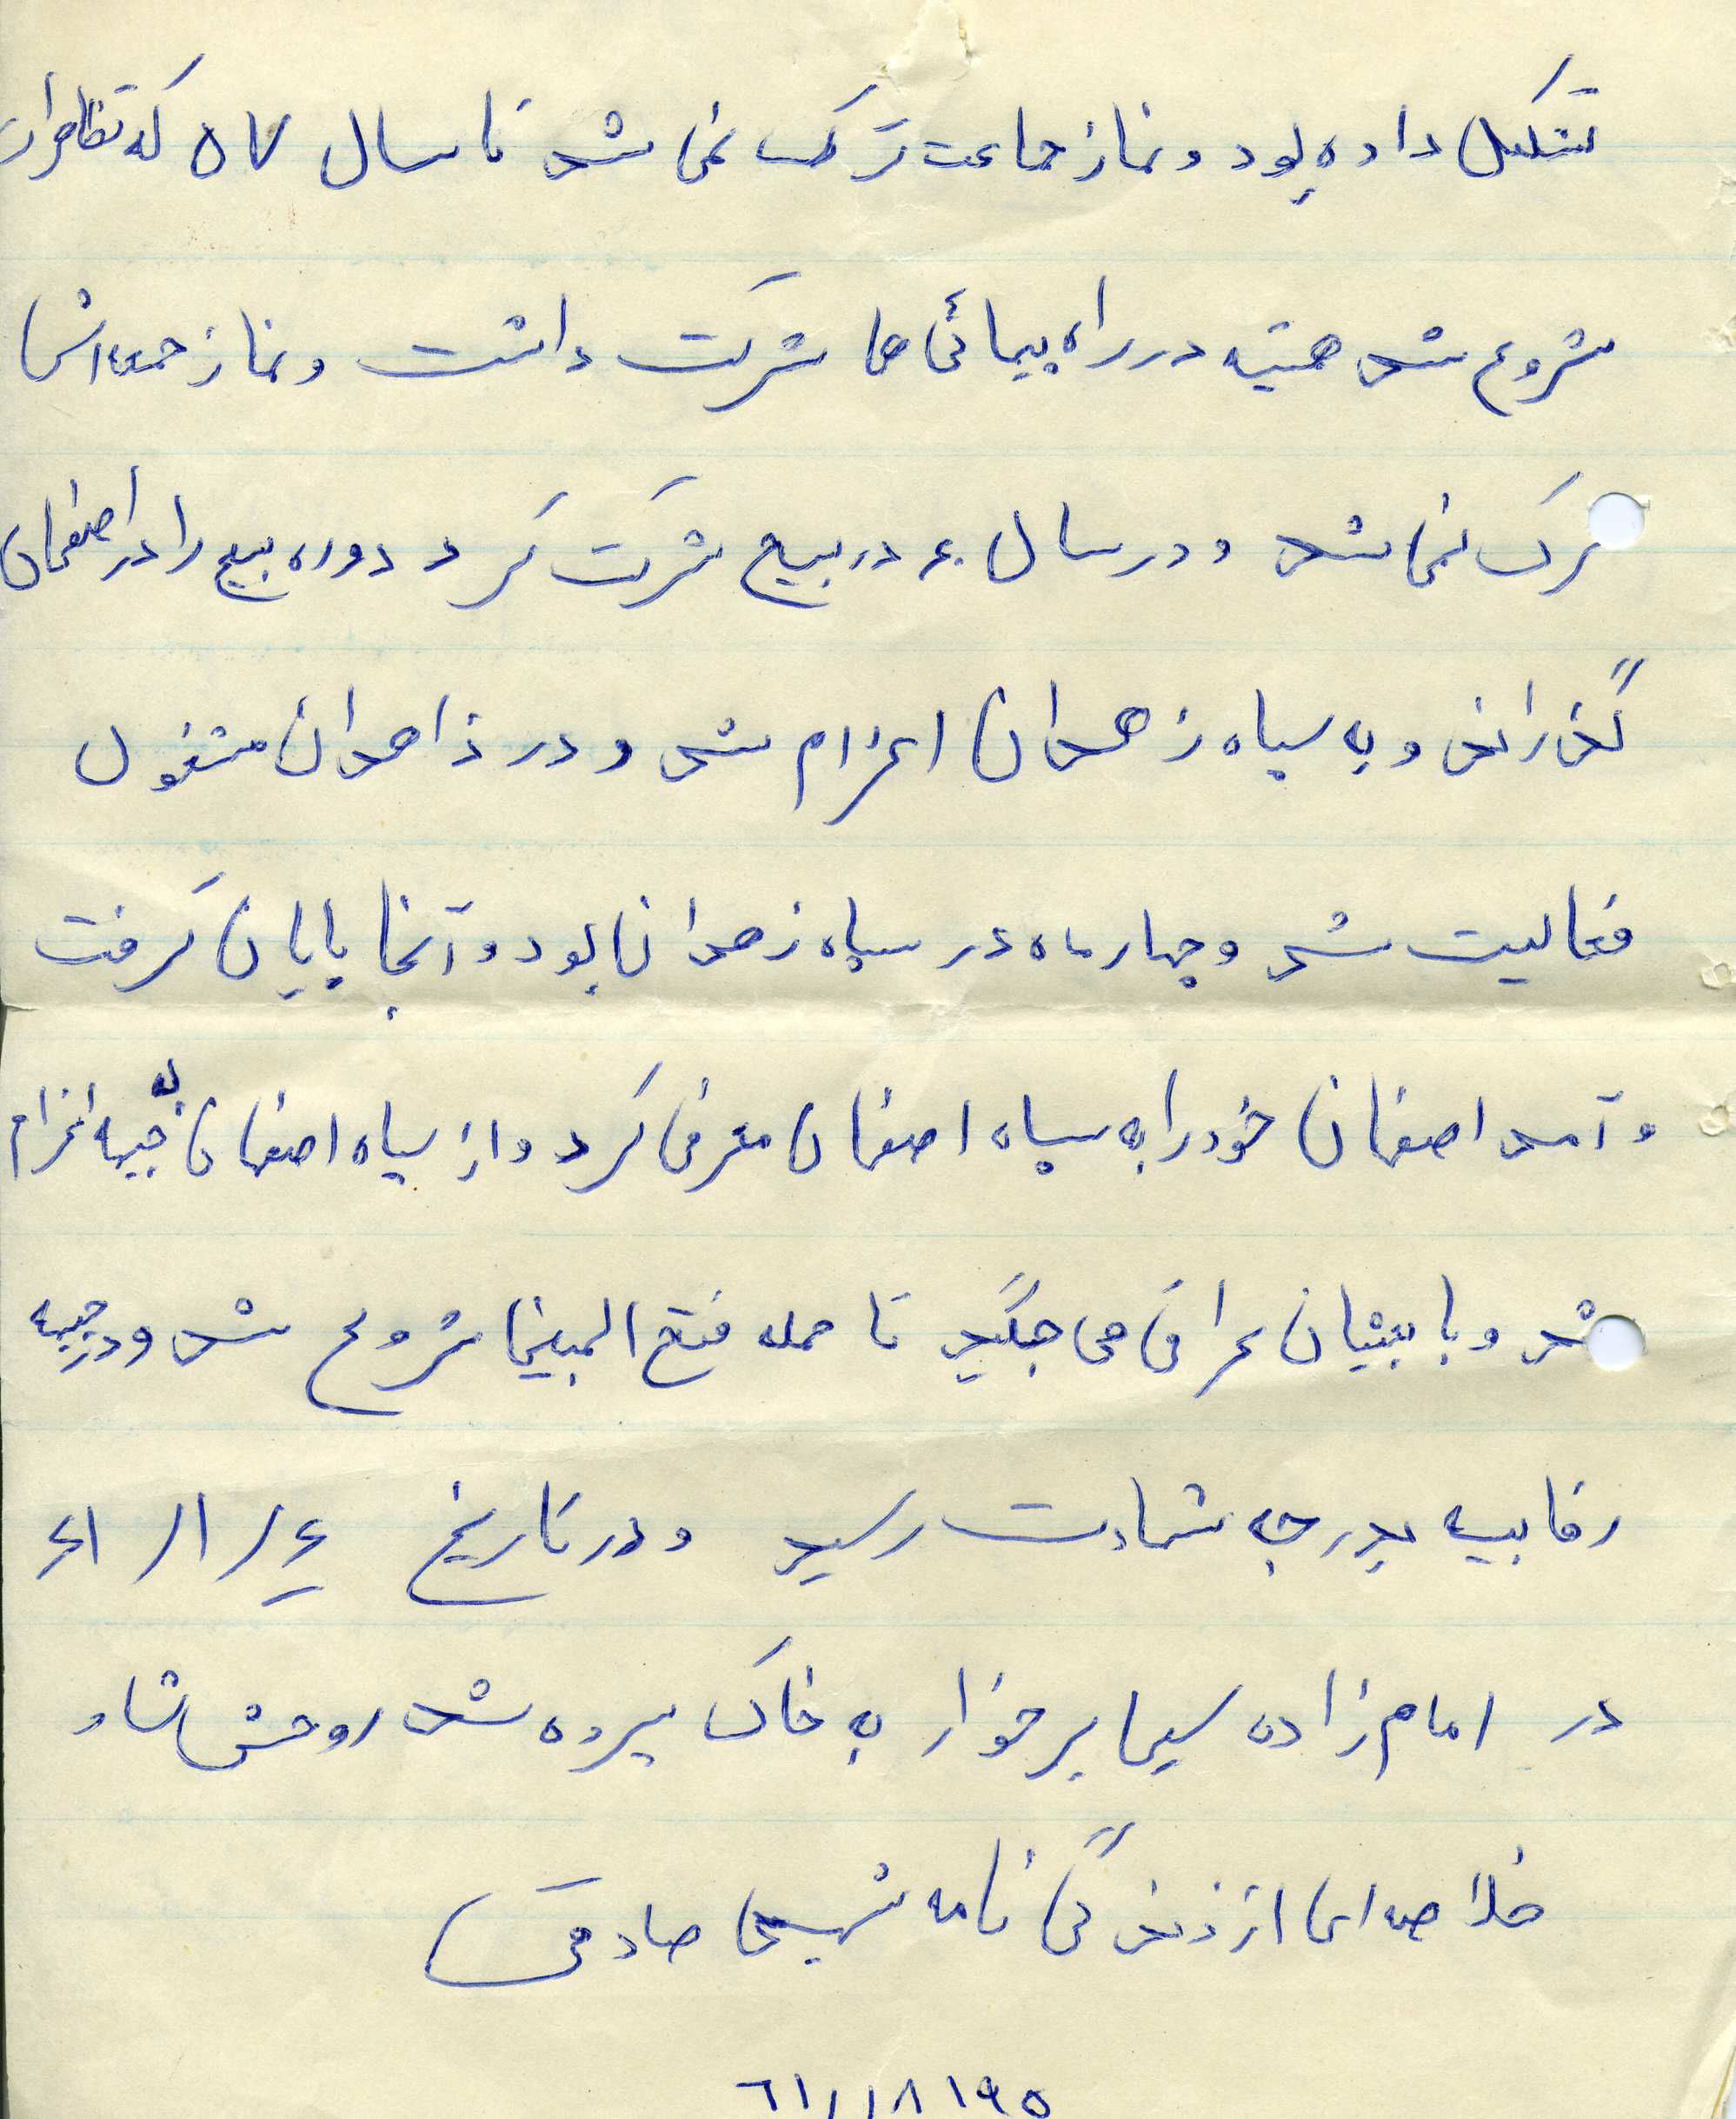 تشکیل داده بود و نماز جماعت ترک نمی شد تا سال ۵۷ که تظاهرات
شروع شد همیشه در راه پیمائی ها شرکت داشت و نماز جمعه اش
ترک نمی شد و در سال ۶۰ در بسیج شرکت کرد دوره بسیج را در اصفهان
گذراند و به سپاه زهدان اعزام شد و در ذاهدان مشغول
فعالیت شد و چهار ماه در سپاه زهدان بود و آنجا پایان گرفت
و آمد اصفهان خود را به سپاه اصفهان معرفی کرد و از سپاه اصفهان به جبهه اعزام
شد و با بعثیان عراقی می جنگید تا حمله فتح المبین شروع شد و در جبهه
رقابیه بدرجه شهادت رسید و در تاریخ ۴/۱/۶۱
در امام زاده سیما برخوار به خاک سپرده شد روحش شاد
خلاصه ای از زندگی نامه شهید صادقی